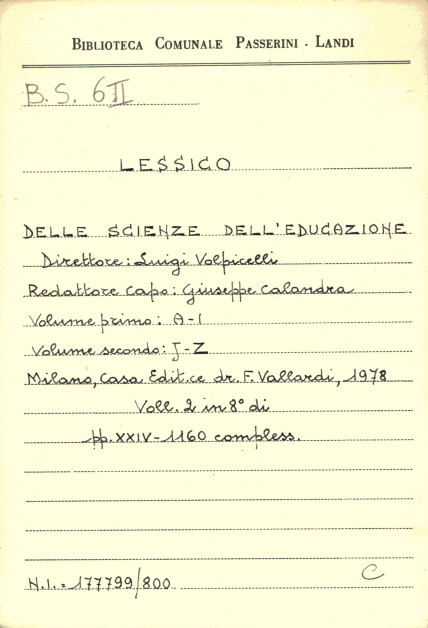 BIBLIOTECA COMUNALE PASSERINI - LANDI
B.S. 6II
LESSICO
DELLE SCIENZE DELL'EDUCAZIONE
Direttore: Luigi Volpicelli
Redattore capo: Giuseppe Calandra
Volume primo: A-I
Volume secondo: J-Z
Milano, Casa Edit.ce dr. F. Vallardi, 1978
Voll. 2 in 8° di
pp. XXIV-1160 compless.
N.I. = 177799/800
C